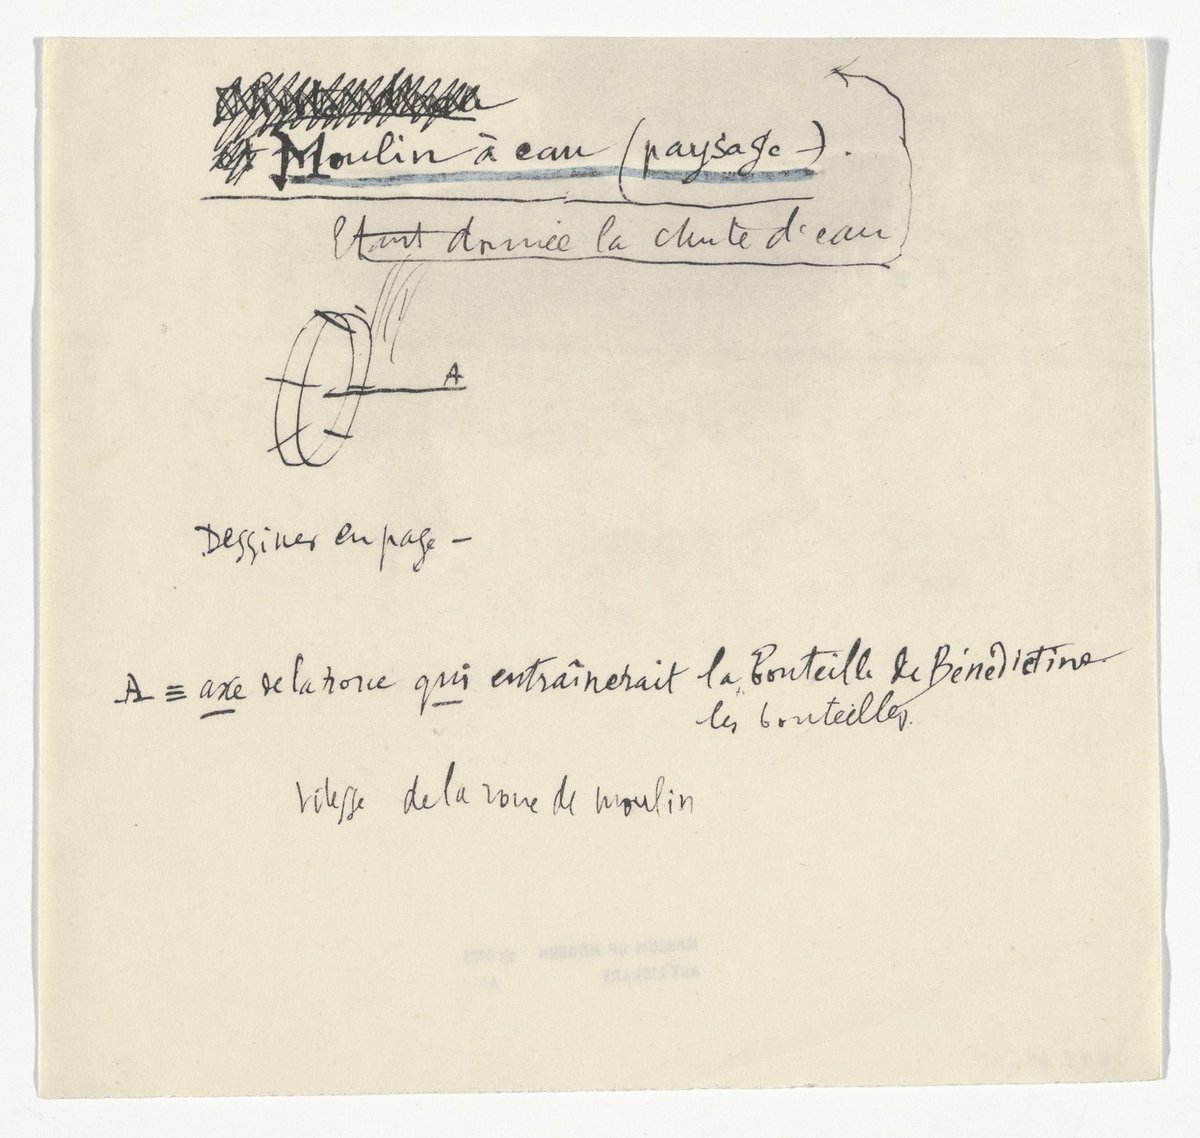 Moulin à eau (paysage -).
Etant donnée la chute d'eau
A
Dessiner en page -
A ≡ axe de la roue qui entraînerait la Bouteille de Bénédictine
les bouteilles.
Vitesse de la roue de moulin
MUSEUM OF MODERN
ART LIBRARY